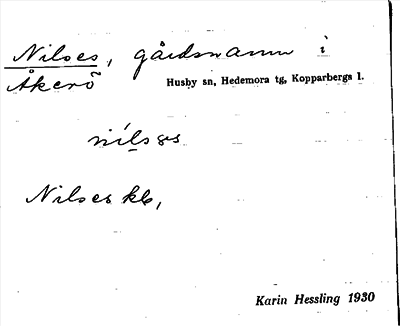 Nilses, gårdsnamn i
Åkerö
Husby sn, Hedemora tg, Kopparbergs l.
nílsəs
Nilses kb,
Karin Hessling 1930